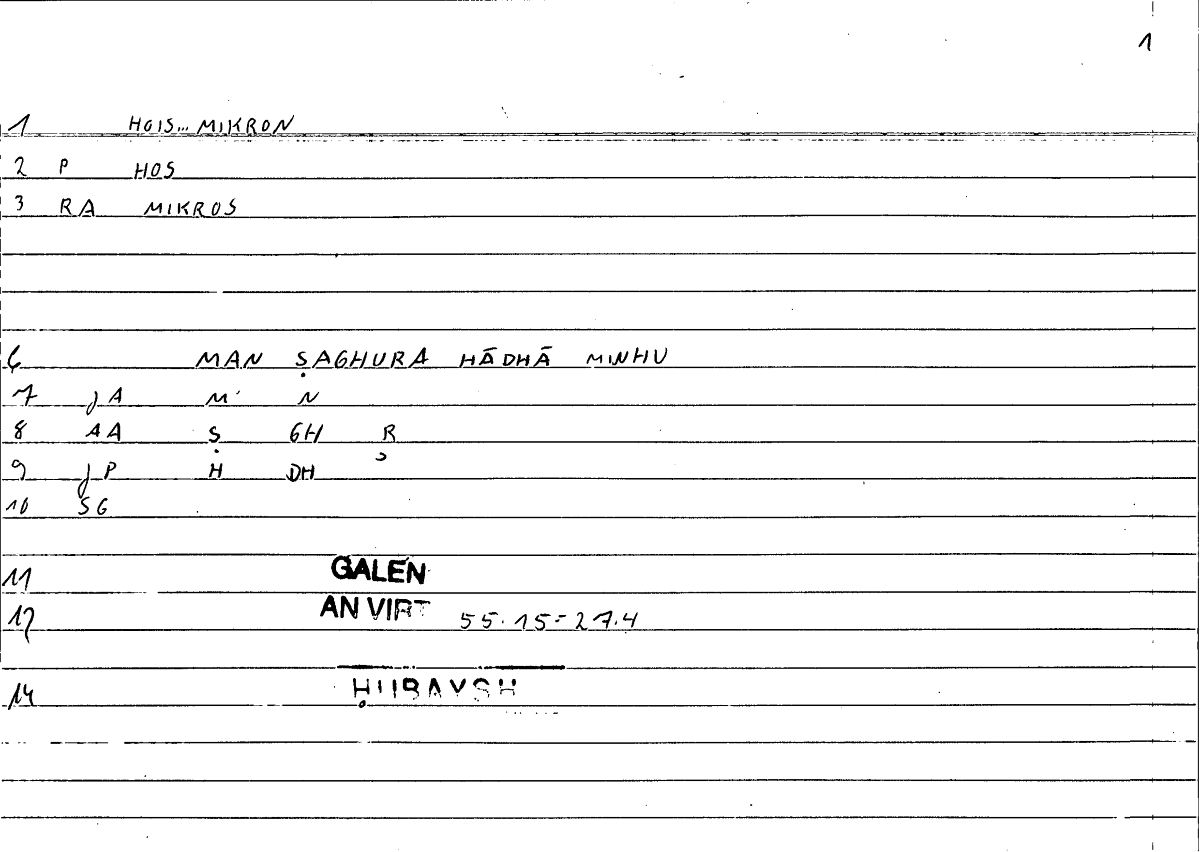 1
1 HOIS... MIKRON
2 P HOS
3 RA MIKROS
6 MAN ṢAGHURA HĀDHĀ MINHU
7 JA M N
8 AA Ṣ GH R
9 JP H DH
10 SG
11 GALEN
12 AN VIRT 55.15=27.4
14 ḤUBAYSH